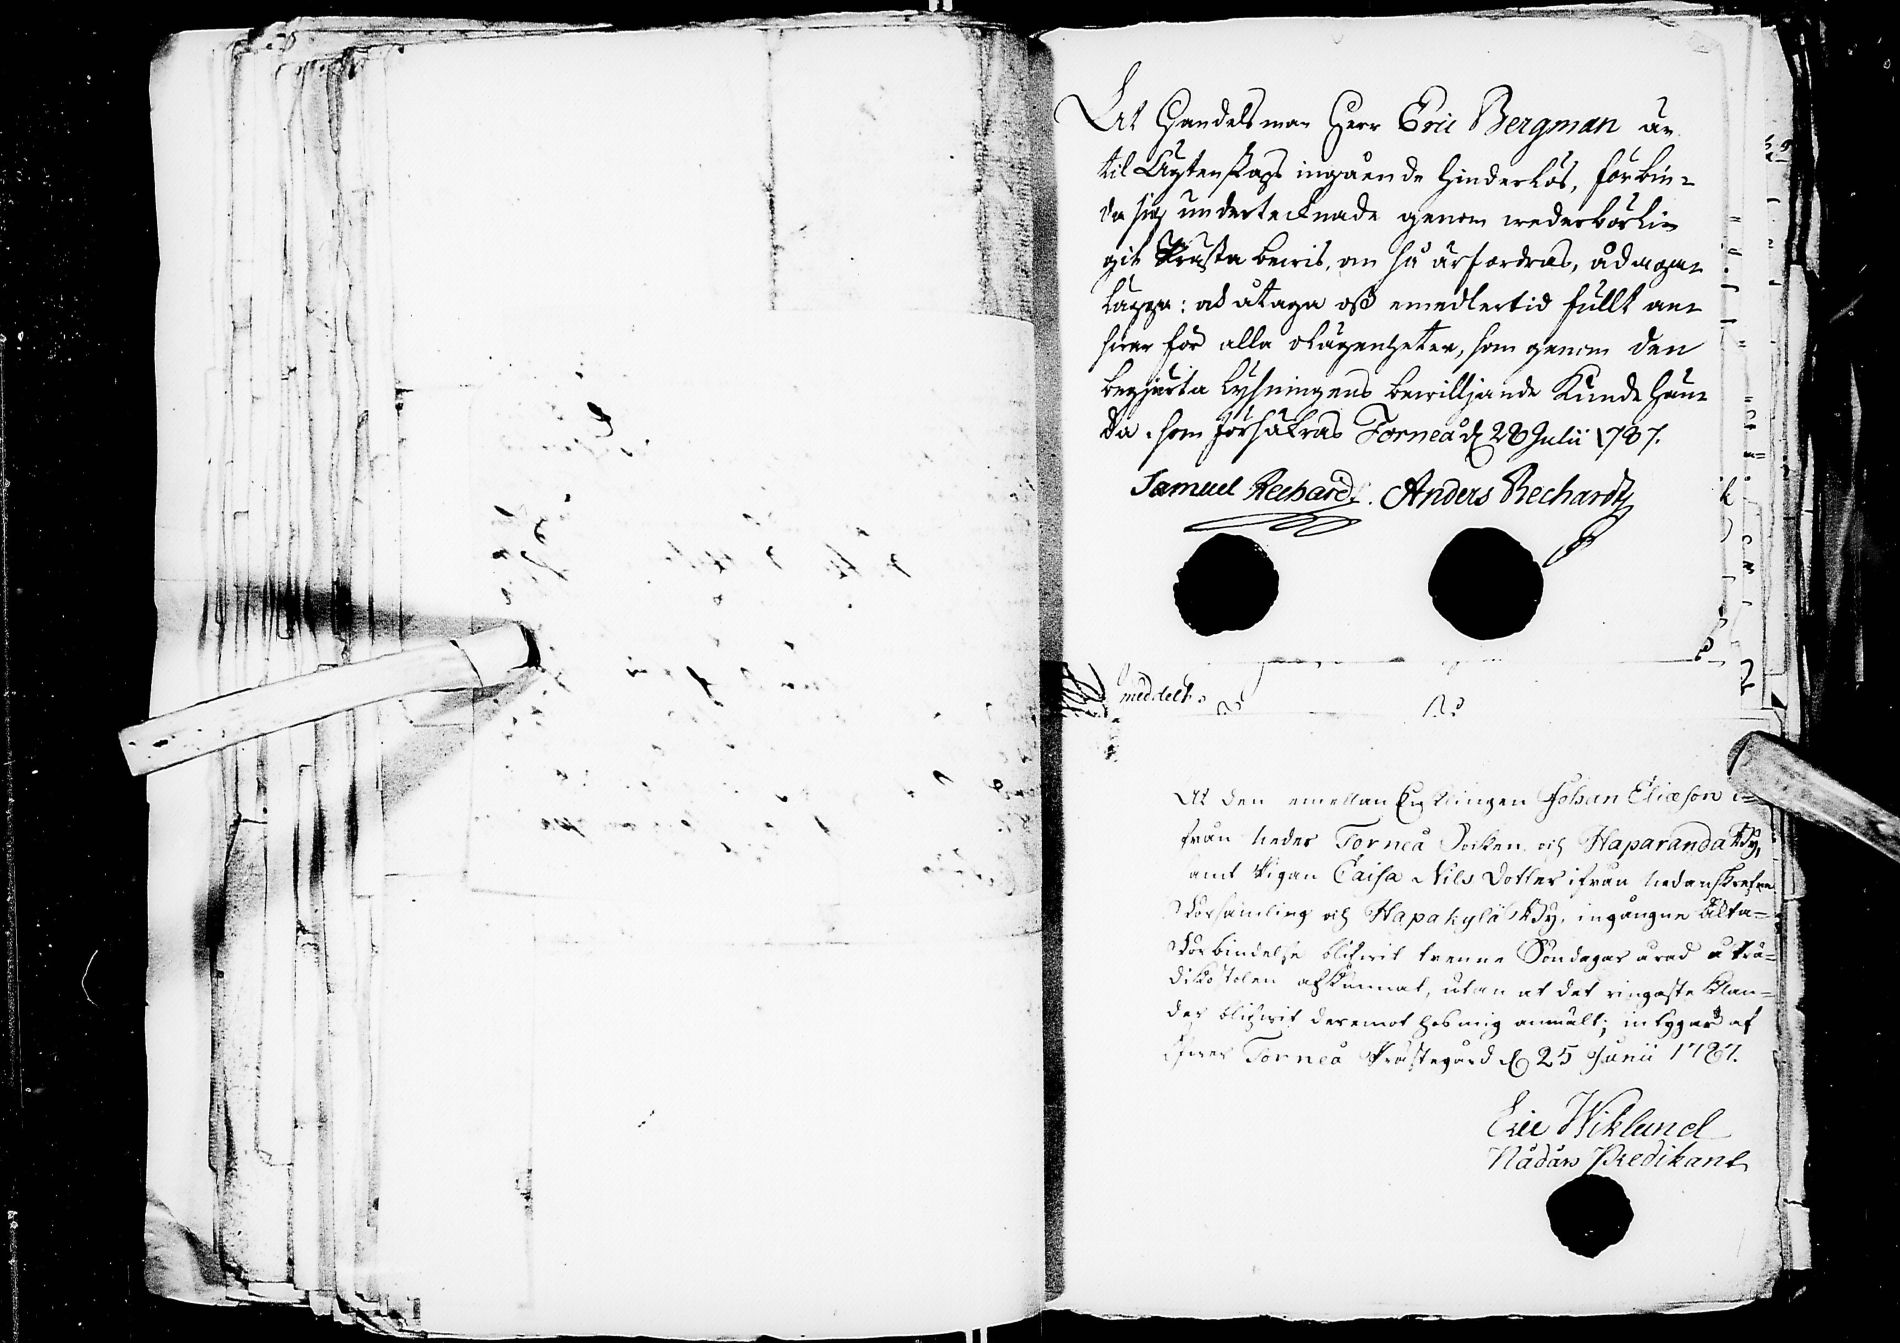 At Handelsman Herr Eric Bergman är
til Ägtenskaps ingående hinderlös, förbin=
da sig undertecknade genom wederbörli=
git Prästa bewis, om så ärfordras, ådaga=
lägga: at åtaga oß emedlertid fullt an=
swar för alla olägenheter, som genom den
begjärta lysningens bewilljande Kunde hän=
da. som försäkras Torneå d 28 Julii 1787.
Samuel Rechardt. Anders Rechardt
meddelt.
At den emellan Ynglingen Johan Eliæson i=
från Neder Torneå Socken och Haparanda By,
samt Pigan Caisa Nils Dotter ifrån nedanskrefne
Församling och Hapakylä By, ingångne Ächta=
Förbindelse blifwit trenne Söndagar å rad å Prä=
dikostolen afkunnat, utan at det ringaste klan=
der blifwit deremot hos mig anmält; intygar af
Öfwer Torneå Prästegård d 25 Junii 1787.
Eric Wiklund
Nådårs Predikant